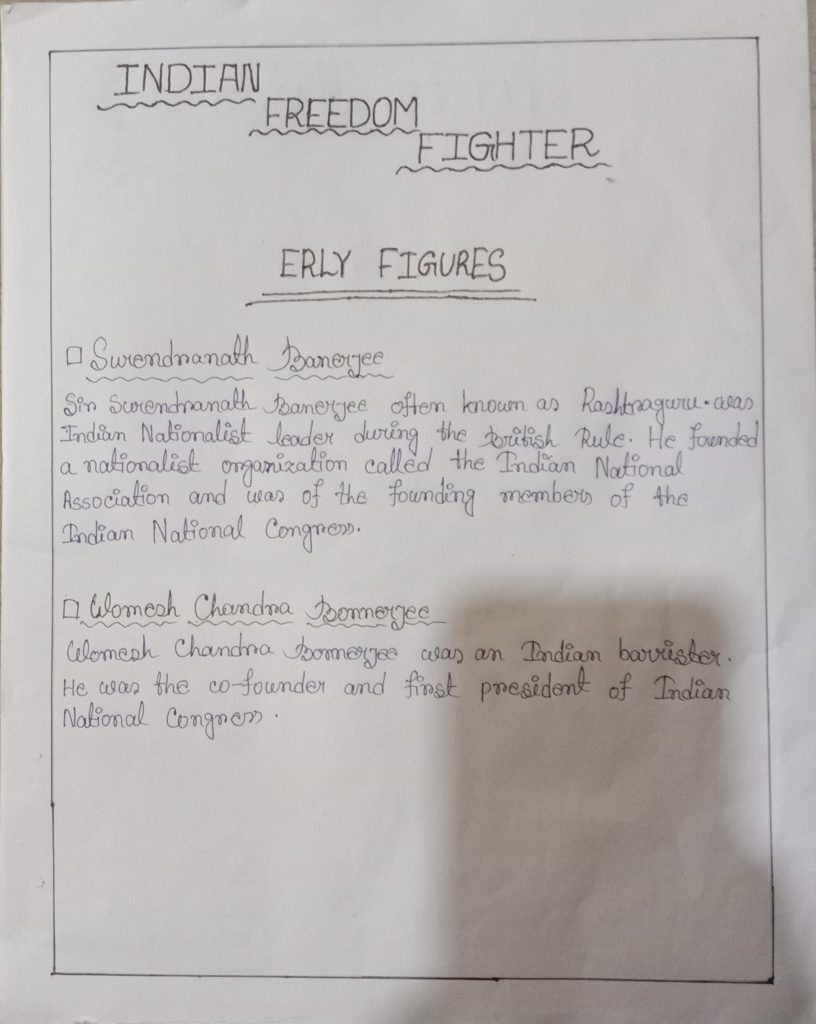 INDIAN
FREEDOM
FIGHTER
ERLY FIGURES
Surendranath Banerjee
Sir Surendranath Banerjee often known as Rashtraguru. was
Indian Nationalist leader during the british Rule. He founded
a nationalist organization called the Indian National
Association and was of the founding members of the
Indian National Congress.
Womesh Chandra Bonnerjee
Womesh Chandra Bonnerjee was an Indian barrister.
He was the co-founder and first president of Indian
National Congress.